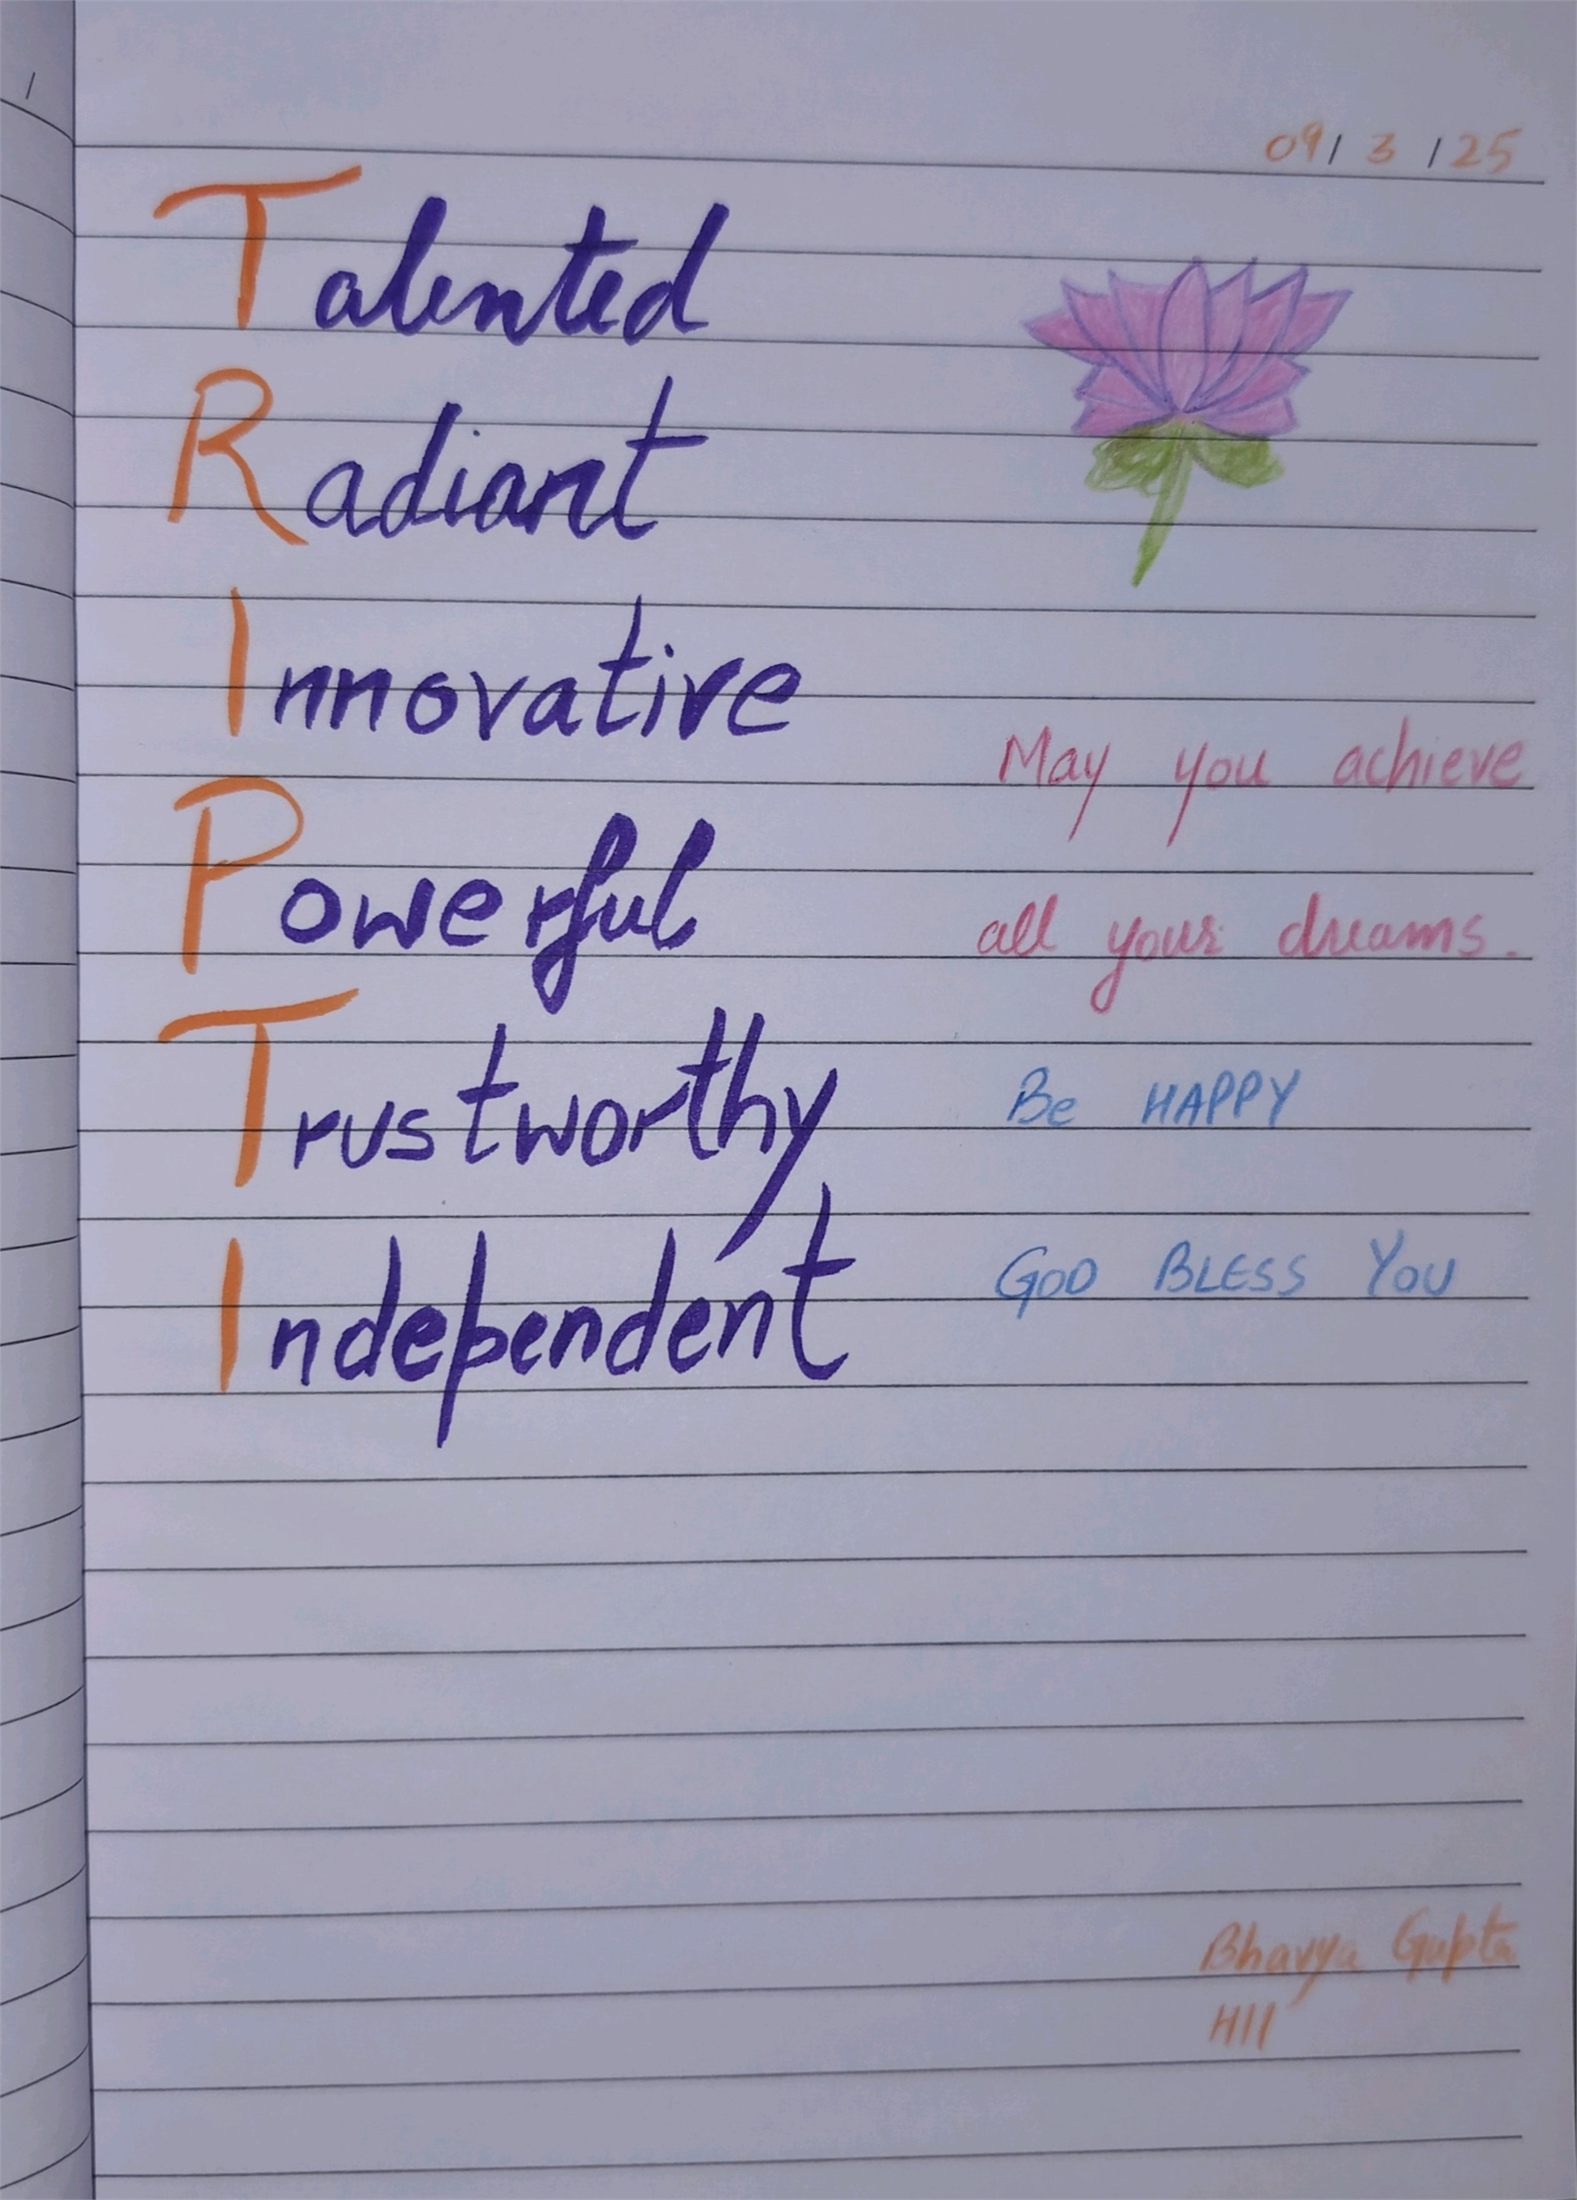 09/3/25
Talented
Radiant
Innovative
Powerful
Trustworthy
Independent
May you achieve
all your dreams.
Be HAPPY
GOD BLESS YOU
Bhavya Gupta
H11